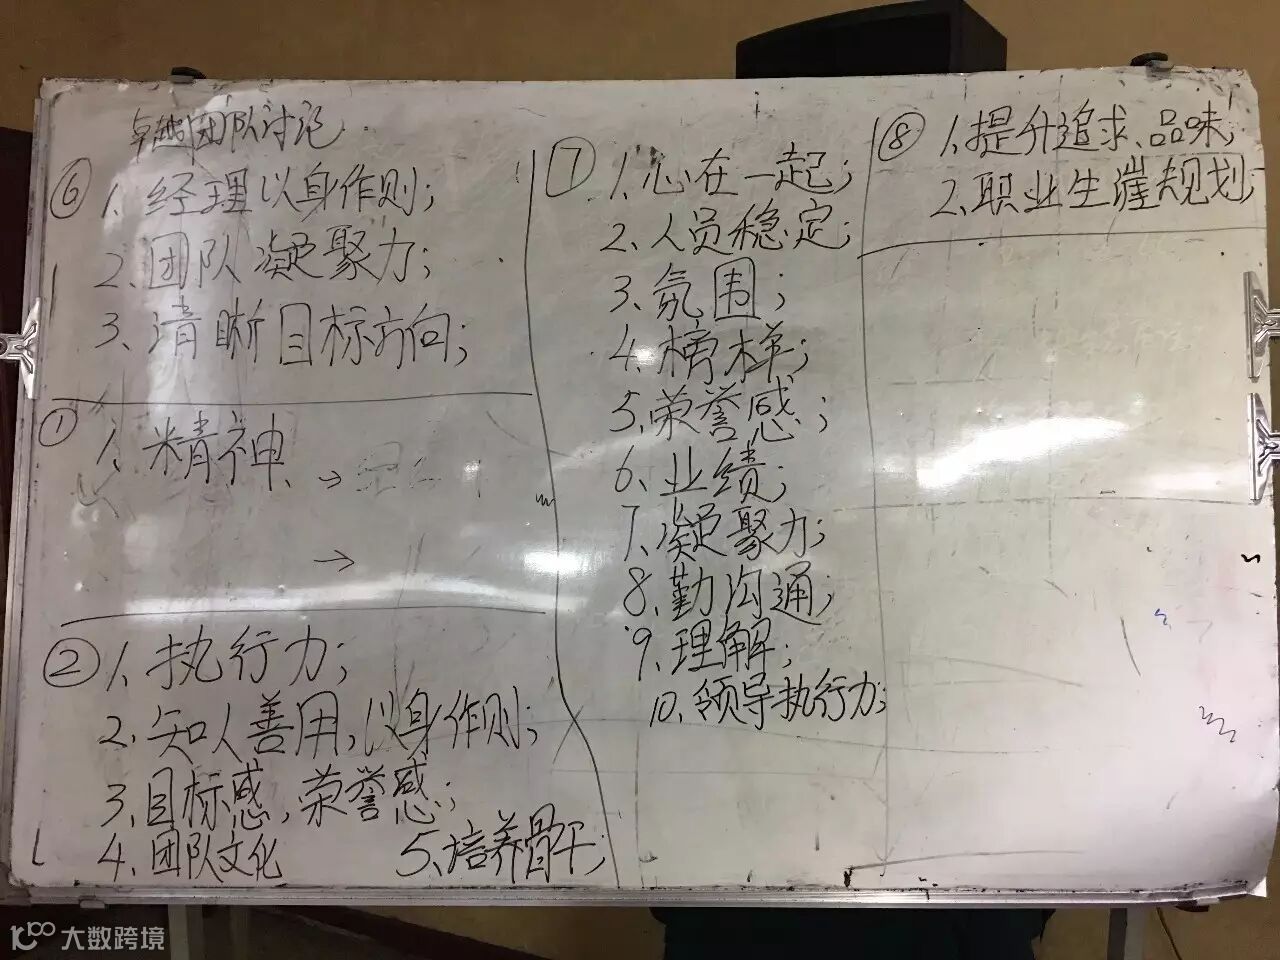 卓越团队讨论
⑥ 1、经理以身作则；
2、团队凝聚力；
3、清晰目标方向；
① 1、精神、→
→
② 1、执行力；
2、知人善用，以身作则；
3、目标感，荣誉感；
4、团队文化 5、培养骨干；
⑦ 1、心在一起；
2、人员稳定；
3、氛围；
4、榜样；
5、荣誉感；
6、业绩；
7、凝聚力；
8、勤沟通；
9、理解；
10、领导执行力；
⑧ 1、提升追求、品味；
2、职业生涯规划；
10100 大数跨境